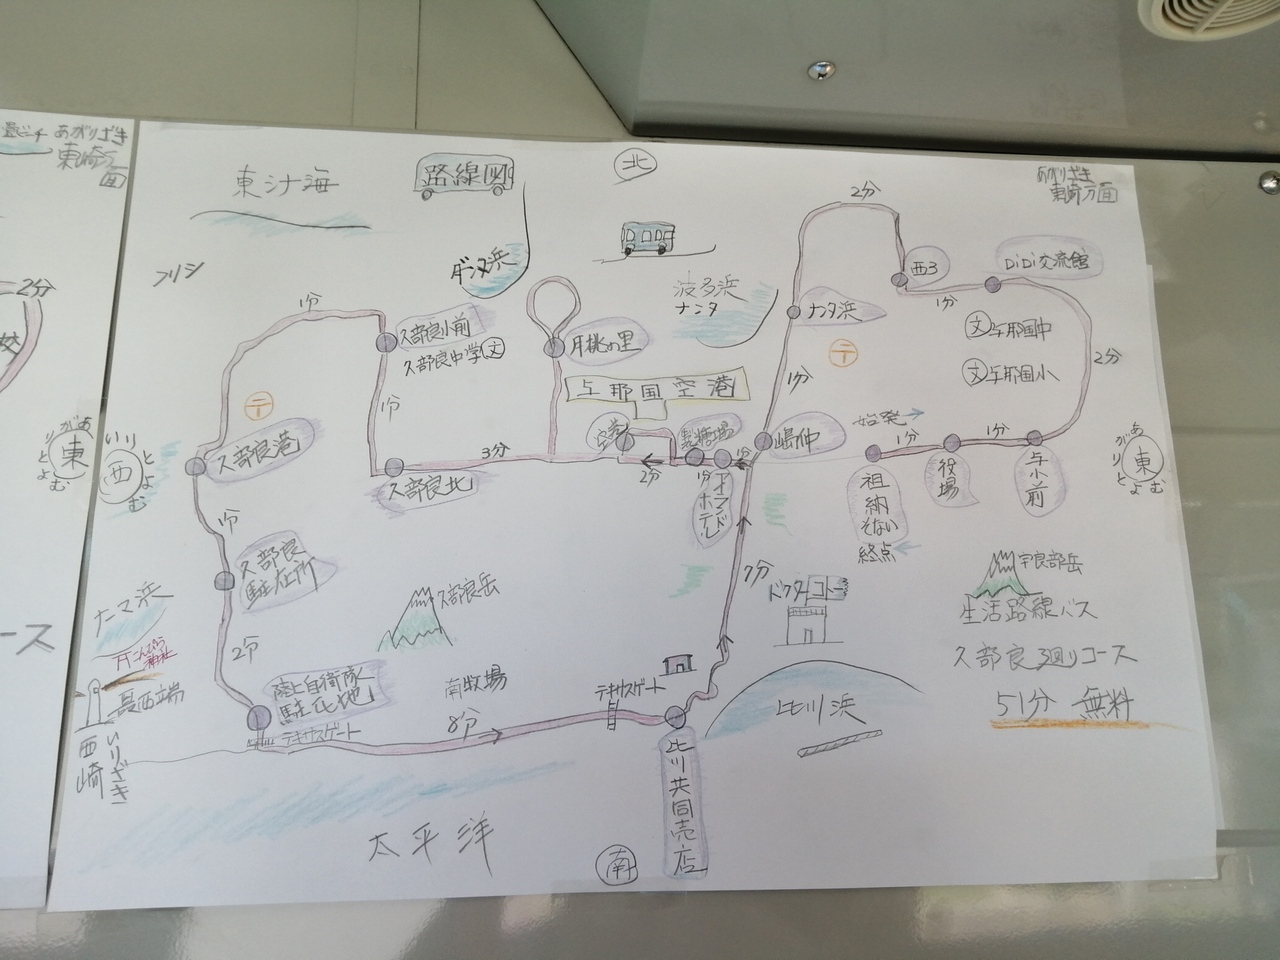 あがりざき
東崎方面
2分
東
ース
東シナ海
路線図
北
あがりざき
東崎方面
ダンヌ浜
波多浜
ナンタ
2分
西3
DiDi交流館
1分
ナンタ浜
〒
文 与那国中
文 与那国小
2分
1分
久部良小前
久部良中学 文
月桃の里
与那国空港
空港
製糖場
嶋仲
始発→
1分
1分
1分
〒
1分
久部良港
久部良北
3分
2分
1分
1分
アイランドホテル
祖納
そない
終点←
役場
与小前
東
あがりとよむ
西
いりとよむ
1分
久部良
駐在所
久部良岳
7分
ドクターコトー
宇良部岳
生活路線バス
久部良廻りコース
51分 無料
ナーマ浜
こんぴら
神社
最西端
西崎
いりざき
2分
陸上自衛隊
駐屯地
テキサスゲート
南牧場
8分
テキサスゲート
比川浜
比川共同売店
太平洋
南